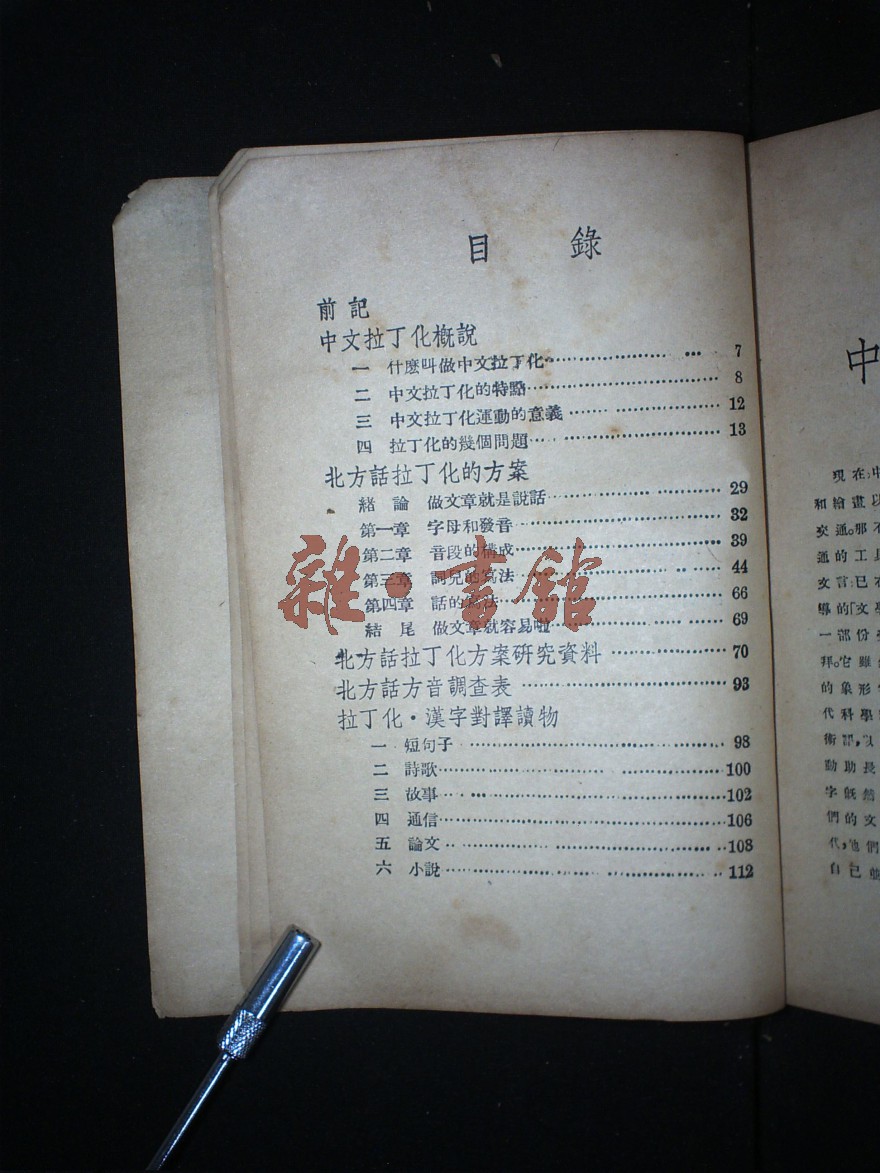 目錄
前記
中文拉丁化概說
一 什麽叫做中文拉丁化 7
二 中文拉丁化的特點 8
三 中文拉丁化運動的意義 12
四 拉丁化的幾個問題 13
北方話拉丁化的方案
緒論 做文章就是說話 29
第一章 字母和發音 32
第二章 音段的構成 39
第三章 詞兒的寫法 44
第四章 話的寫法 66
結尾 做文章就容易啦 69
北方話拉丁化方案研究資料 70
北方話方音調查表 93
拉丁化·漢字對譯讀物
一 短句子 98
二 詩歌 100
三 故事 102
四 通信 106
五 論文 108
六 小說 112
雜·書館
中
現在,中
和繪畫以
交通。那不
通的工具
文言;已在
導的「文學
一部份
拜。它雖
的象形
代科學
術
動助長
字旣然
們的文
代,他們
自己